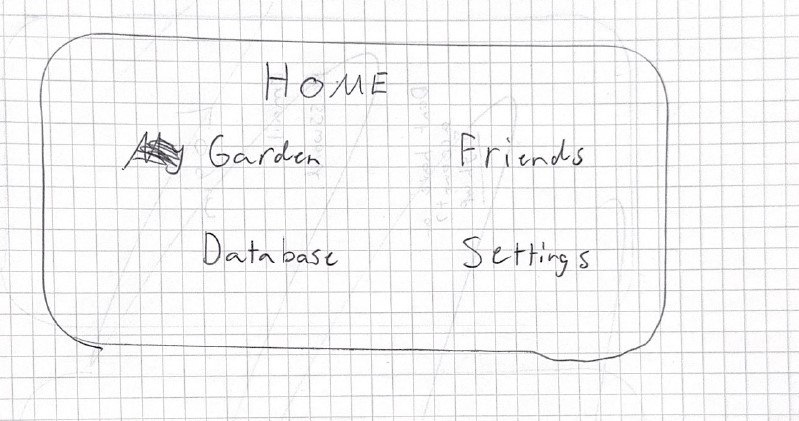 HOME
Garden Friends
Database Settings